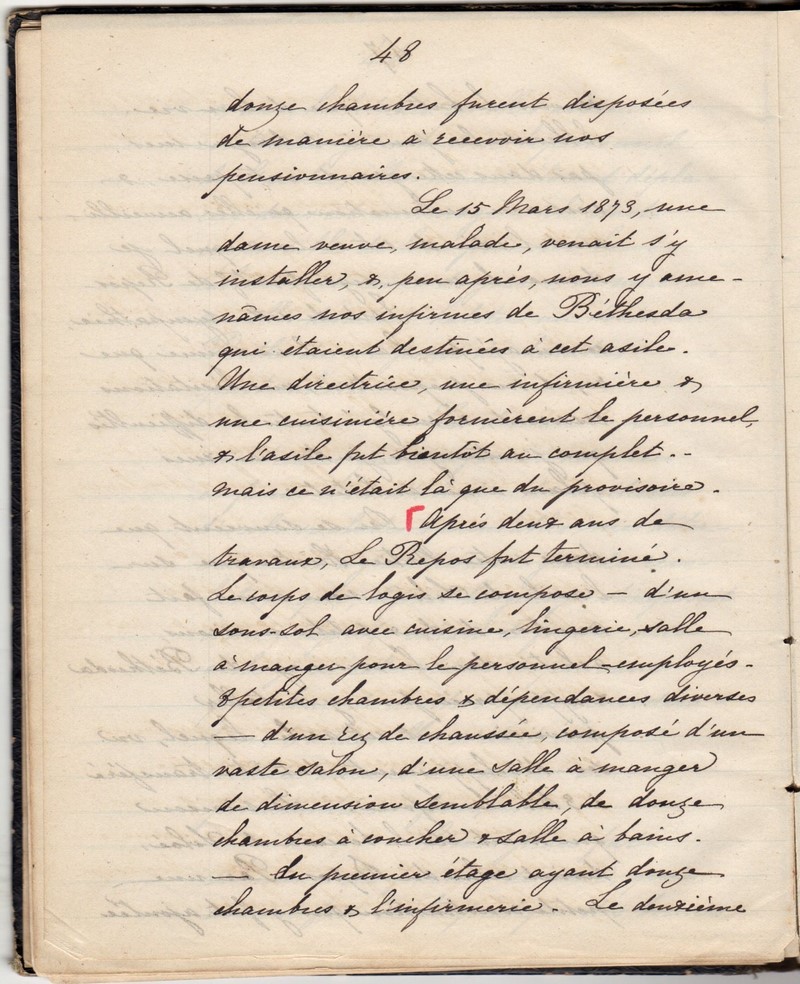 48
douze chambres furent disposées
de manière à recevoir nos
pensionnaires.
Le 15 Mars 1873, une
dame veuve, malade, venait s'y
installer, &, peu après, nous y ame-
nâmes nos infirmes de Béthesda
qui étaient destinées à cet asile.
Une directrice, une infirmière &
une cuisinière formèrent le personnel,
& l'asile fut bientôt au complet. -
Mais ce n'était là que du provisoire.
Après deux ans de
travaux, Le Repos fut terminé.
Le corps de logis se compose — d'un
sous-sol avec cuisine, lingerie, salle
à manger pour le personnel-employés-
& petites chambres & dépendances diverses
— d'un rez de chaussée, composé d'un
vaste salon, d'une salle à manger
de dimension semblable, de douze
chambres à coucher & salle à bains.
— Du premier étage ayant douze
chambres & l'infirmerie. Le douzième